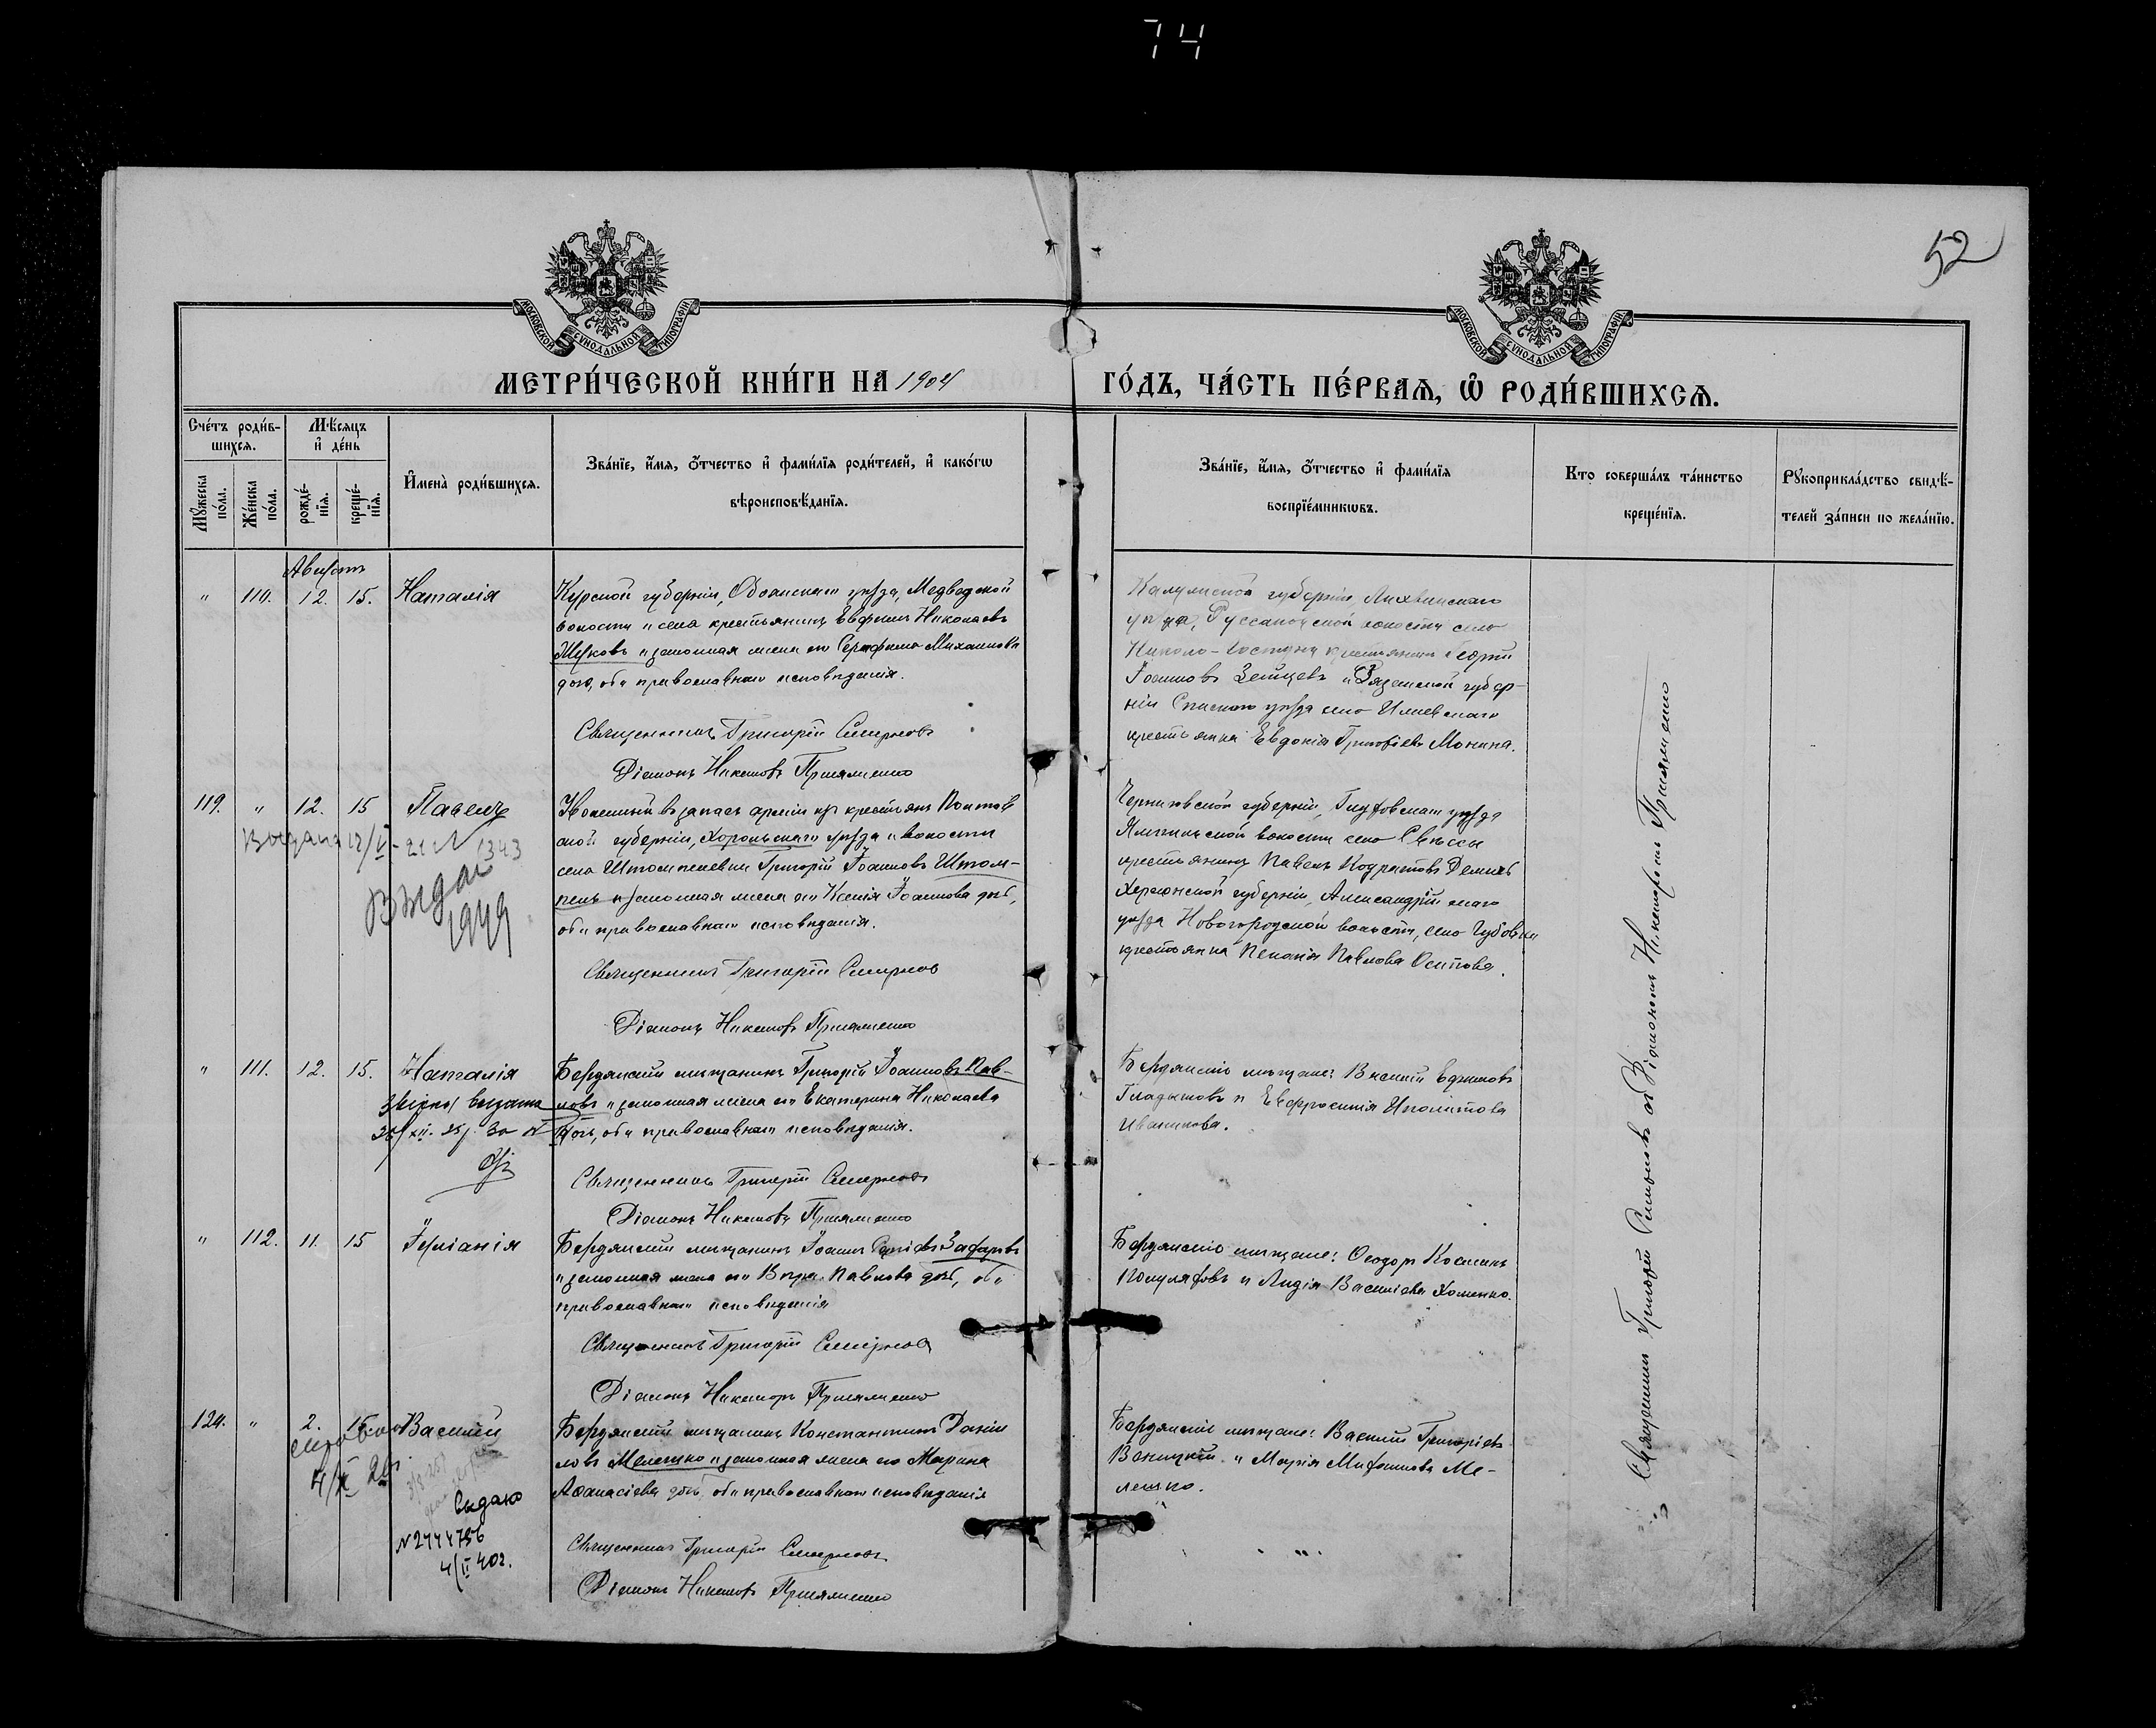 74
52
МОСКОВСКОЙ СѴНОДАЛЬНОЙ ТИПОГРАФІИ
МОСКОВСКОЙ СѴНОДАЛЬНОЙ ТИПОГРАФІИ
МЕТРИ́ЧЕСКОЙ КНИ́ГИ НА 1904 ГО́ДЪ, ЧА́СТЬ ПЕ́РВАѦ, Ѡ҆ РОДИ́ВШИХСѦ.
Сче́тъ роди́в-
шихсѧ.
Мѣ́сѧцъ
и҆ де́нь
Мꙋ́жеска
по́ла.
Же́нска
по́ла.
рожде́-
нїѧ.
креще́-
нїѧ.
И҆мена̀ роди́вшихсѧ.
Зва́нїе, и҆́мѧ, ѻ҆́тчество и҆ фами́лїѧ роди́телей, и҆ како́гѡ
вѣроисповѣ́данїѧ.
Зва́нїе, и҆́мѧ, ѻ҆́тчество и҆ фами́лїѧ
воспрїе́мникѡвъ.
Кто̀ соверша́лъ та́инство
креще́нїѧ.
Рꙋкоприкла́дство свидѣ́-
телей за́писи по жела́нїю.
Августъ
" 110. 12. 15. Наталія
Курской губерніи, Обоянскаго уѣзда, Медведской
волости и села крестьянинъ Евфимій Николаевъ
Жуковъ и законная жена его Серафима Михаилова
дочь, оба православнаго исповѣданія.
Священникъ Григорій Смирновъ
Діаконъ Никаноръ
Калужской губерніи, Лихвинскаго
уѣзда, волости село
крестьянинъ Георгій
Іоанновъ Зайцевъ и Рязанской губер-
ніи Спасскаго уѣзда село
крестьянка Евдокія Григоріева Монина.
119. " 12. 15 Павелъ
Выдана 12/V - 21
1343
Выдан
1949
Уволенный въ запасъ арміи изъ крестьянъ Полтав
ской губерніи, Хорольскаго уѣзда и волости
села Штомпелевки Григорій Іоанновъ Штом-
пель и законная жена его Ксенія Іоаннова дочь,
оба православнаго исповѣданія.
Священникъ Григорій Смирновъ
Діаконъ Никаноръ
Черниговской губерніи, Глуховскаго уѣзда
Ямпольской волости село Свѣссы
крестьянинъ Павелъ
Херсонской губерніи, Александрійскаго
уѣзда Новогородской волости, село Губовки
крестьянка Пелагія Павлова Осипова.
" 111. 12. 15. Наталія
выдана
Бердянскій мѣщанинъ Григорій Іоанновъ Пав-
ловъ и законная жена его Екатерина Николаева
дочь, оба православнаго исповѣданія.
Священникъ Григорій Смирновъ
Діаконъ Никаноръ
Бердянскіе мѣщане: Василій Ефимовъ
Гладышовъ и Евфросинія Иполитова
Иванникова.
" 112. 11. 15 Іуліанія
Бердянскій мѣщанинъ Іоаннъ Захаровъ
и законная жена его Вѣра Павлова дочь, оба
православнаго исповѣданія
Священникъ Григорій Смирновъ
Діаконъ Никаноръ
Бердянскіе мѣщане: Ѳеодоръ Косминъ
и Лидія Василіева Хоменко.
120. " 2. 15 Василій
Выдано
N2444756
4/II 40г.
Бердянскій мѣщанинъ Константинъ Даніи
ловъ Мелешко и законная жена его Марина
Аѳанасіева дочь, оба православнаго исповѣданія
Священникъ Григорій Смирновъ
Діаконъ Никаноръ
Бердянскіе мѣщане: Василій Григоріевъ
и Марія Ме-
лешко.
Священникъ Григорій Смирновъ съ Діакономъ Никаноромъ